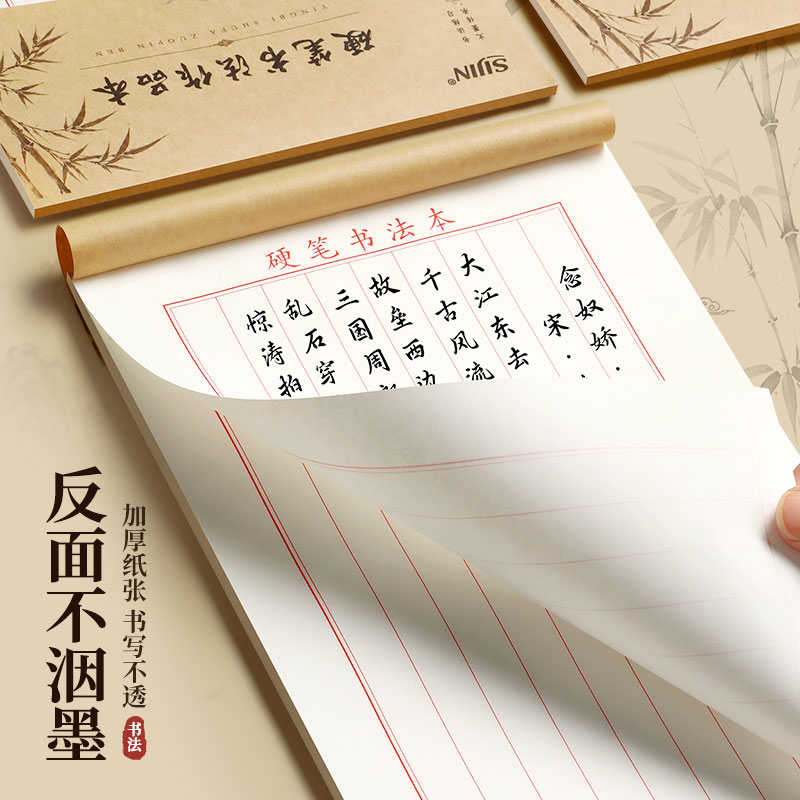 硬笔书法作品本
YINGBI SHUFA ZUOPIN BEN
SIJIN®
硬笔书法本
念奴娇·
宋·
大江东去
千古风流
故垒西边
三国周
乱石穿
惊涛拍
反面不洇墨
加厚纸张 书写不透
书法